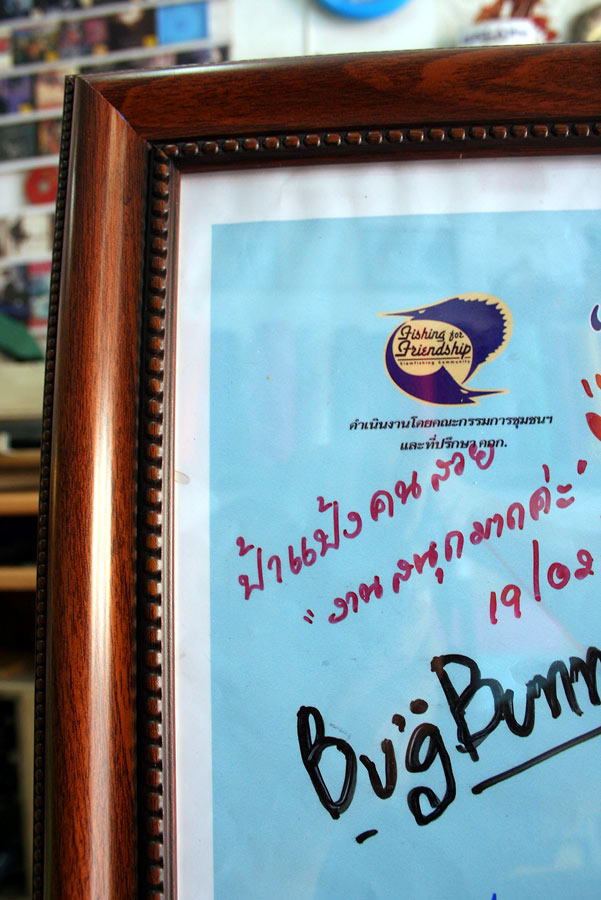 Fishing for
Friendship
Siamfishing Community
ดำเนินงานโดยคณะกรรมการชุมชนฯ
และที่ปรึกษา คกก.
ป้าแป้งคนสวย
"งานสนุกมากค่ะ"
19/02
Bug Bunn